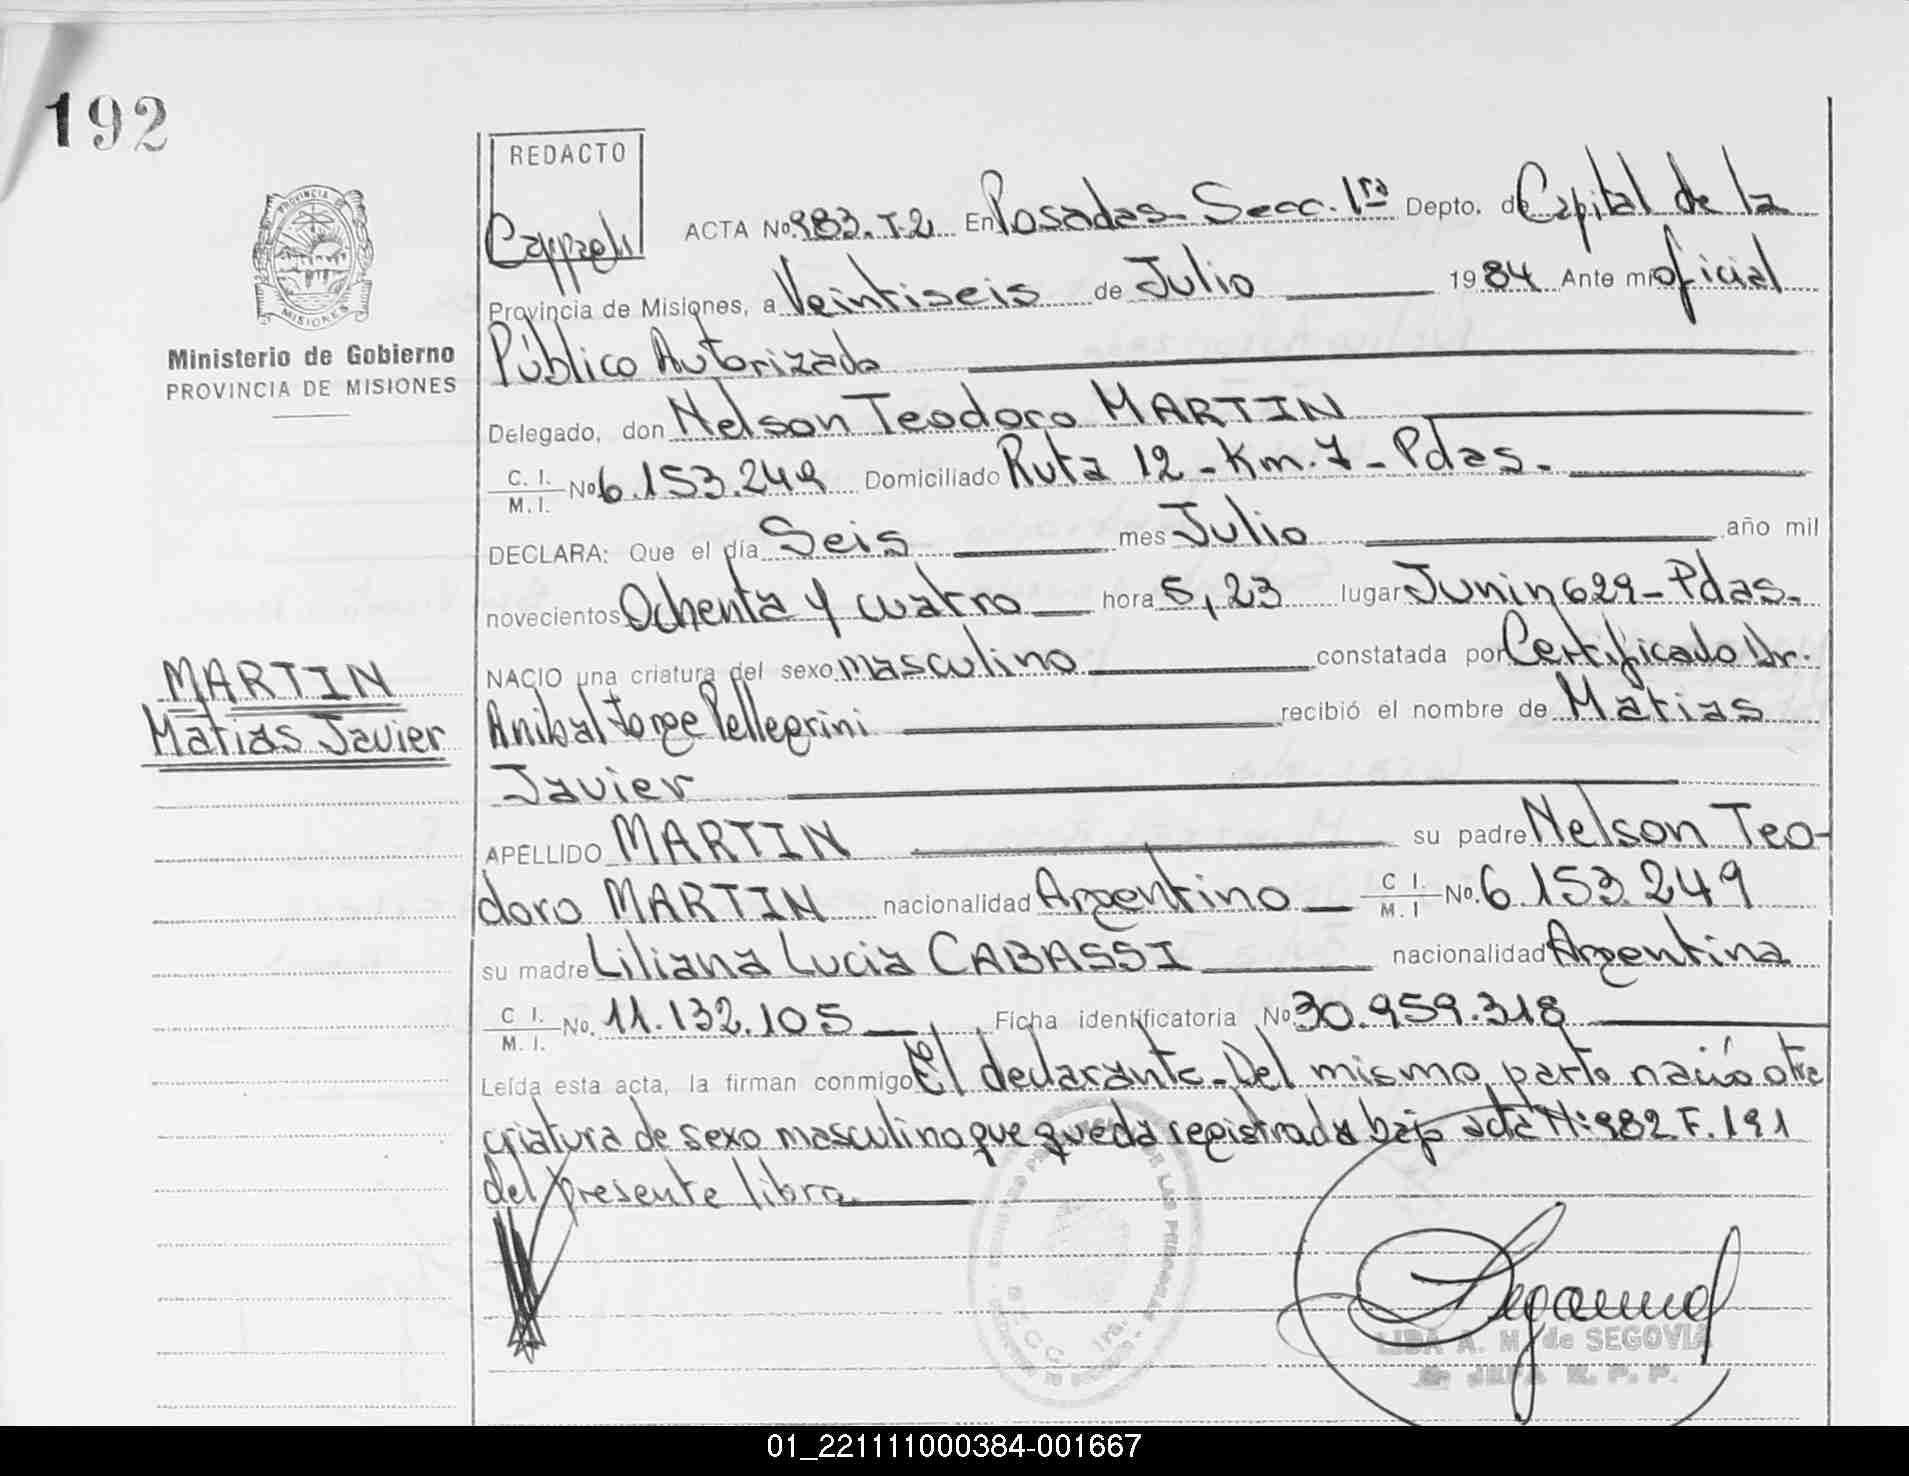 192
REDACTO
PROVINCIA
MISIONES
Ministerio de Gobierno
PROVINCIA DE MISIONES
ACTA No. 983. T-2 En Posadas- Secc. 1ra Depto. de Capital de la
Provincia de Misiones, a Veintiseis de Julio 1984 Ante mi oficial
Público Autorizado
Delegado, don Nelson Teodoro MARTIN
C. I. / M. I. No 6.153.249 Domiciliado Ruta 12 - Km. 7 - Pdas.
DECLARA: Que el día Seis mes Julio año mil
novecientos Ochenta y cuatro hora 5,23 lugar Junin 629 - Pdas.
NACIO una criatura del sexo masculino constatada por Certificado Dr.
Anibal Jorge Pellegrini recibió el nombre de Matias
Javier
MARTIN
Matias Javier
APELLIDO MARTIN su padre Nelson Teo-
doro MARTIN nacionalidad Argentino C I. / M. I No. 6.153.249
su madre Liliana Lucia CABASSI nacionalidad Argentina
C I. / M. I. No. 11.132.105 Ficha identificatoria No 30.959.318
Leída esta acta, la firman conmigo El declarante. Del mismo parto nació otra
criatura de sexo masculino que queda registrada bajo acta Nº 982 F. 191
del presente libro.
DE LAS PERSONAS
SECC. 1ra.
A. M. de SEGOVIA
JEFA R. P. P.
01_221111000384-001667